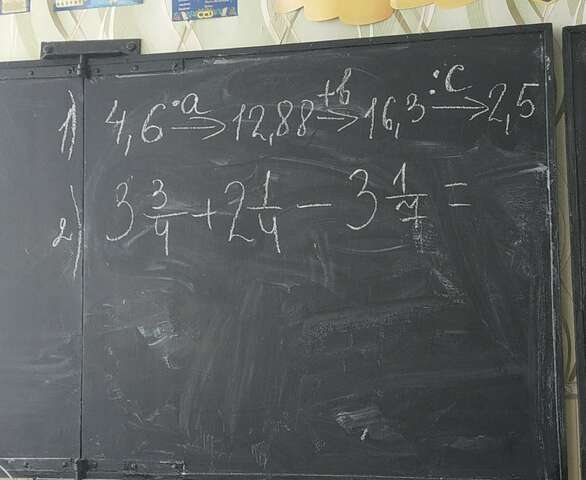 1) 4,6 ·a→ 12,88 +b→ 16,3 :c→ 2,5
2) 3 3/4 + 2 1/4 - 3 1/7 =